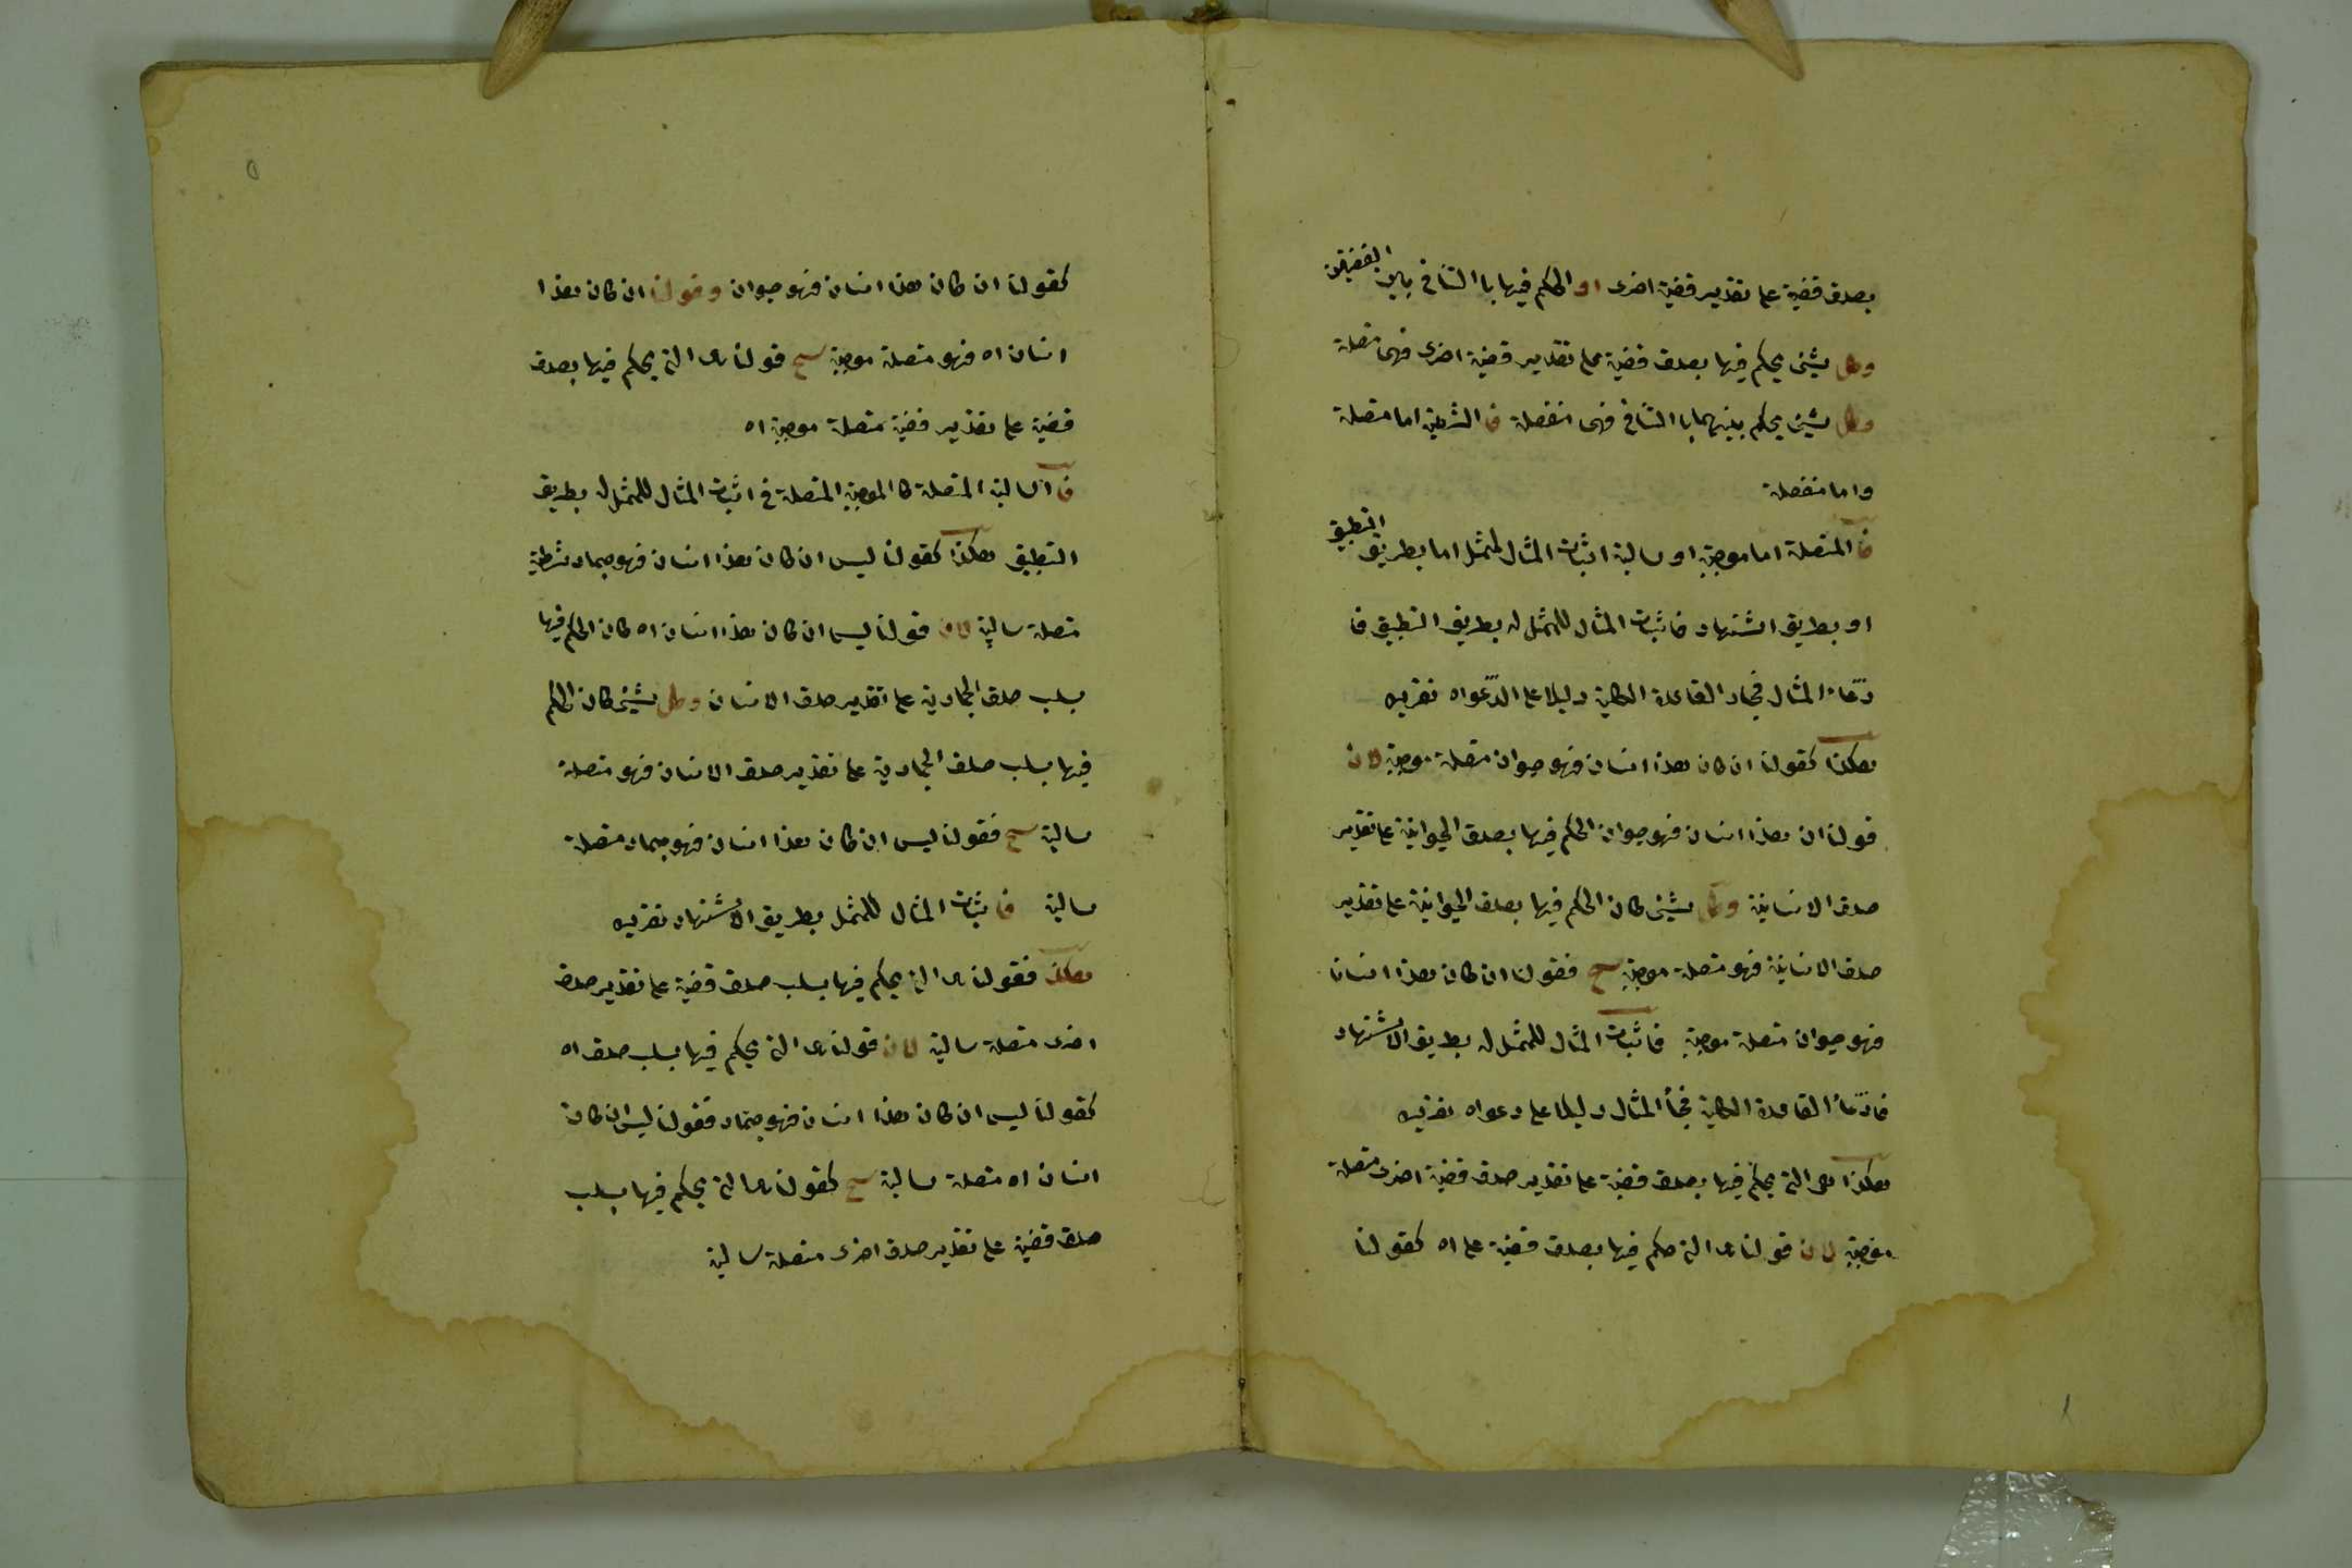 بصدق قضية على تقدير قضية اخرى او الحكم فيها باالتنافى بين القضيتين
وكل شيئ يحكم فيها بصدق قضية على تقدير قضية اخرى فهى متصلة
وكل شيئ يحكم بينهما باالتنافى فهى منفصلة فا الشرطية اما متصلة
واما منفصلة
فا المتصلة اما موجبة او سالبة اثبات المثال لممثل اما بطريق التطبيق
او بطريق اشتهاد فاثبات المثال للممثل له بطريق التطبيق فا
دّعاء المثال فجاد القاعدة الكلية دليلا على الدّعواه تقريبه
هكذا كقولنا ان كان هذا انسان فهو حيوان متصلة موجبة لان
قولنا ان هذا انسان فهو حيوان الحكم فيها بصدق الحيوانية على تقدير
صدق الانسانية وكل شيئ كان الحكم فيها بصدق الحيوانية على تقدير
صدق الانسانية فهو متصلة موجبة سح فقولنا ان كان هذا انسانا
فهو حيوان متصلة موجبة فاثبات المثال للممثل له بطريق الاشتهاد
فادّعاء القاعدة الكلية فجأ المثال دليلا على دعواه تقريبه
هكذا هى التى يحكم فيها بصدق قضية على تقدير صدق قضية اخرى متصلة
موجبة لان قولنا هى التى حكم فيها بصدق قضية على اه كقولنا
٥
كقولنا ان كان هذا انسان فهو حيوان وقولنا ان كان هذا
انسان اه فهو متصلة موجبة سح قولنا هى التى يحكم فيها بصدق
قضية على تقدير قضية متصلة موجبة اه
فا السالبة المتصلة كا الموجبة المتصلة فى اثبات المثال للممثل له بطريق
التطبيق هكذا كقولنا ليس ان كان هذا انسان فهو جماد شرطية
متصلة سالبة لان قولنا ليس ان كان هذا انسان اه كان الحكم فيها
بسلب صدق الجمادية على تقدير صدق الانسان وكل شيئ كان الحكم
فيها بسلب صدق الجمادية على تقدير صدق الانسان فهو متصلة
سالبة سح فقولنا ليس ان كان هذا انسان فهو جماد متصلة
سالبة فاثبات المثال للممثل بطريق الاشتهاد تقريبه
هكذا فقولنا هى التى يحكم فيها بسلب صدق قضية على تقدير صدق
اخرى متصلة سالبة لان قولنا هى التى يحكم فيها بسلب صدق اه
كقولنا ليس ان كان هذا انسان فهو جماد فقولنا ليس ان كان
انسان اه متصلة سالبة سح كقولنا هى التى يحكم فيها بسلب
صدق قضية على تقدير صدق اخرى متصلة سالبة